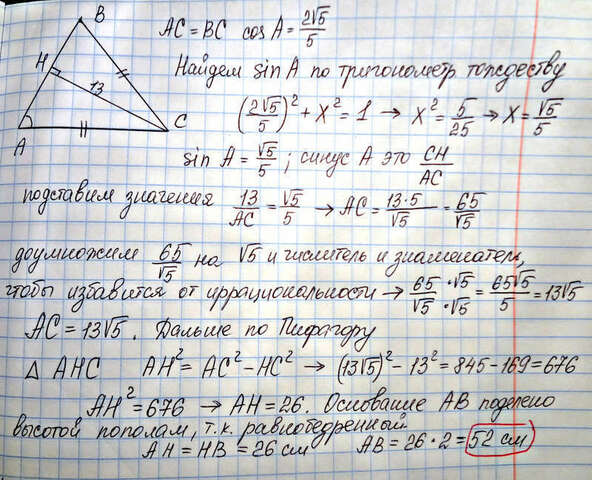 B
AC = BC cos A = 2√5/5
H
13
A
C
Найдем sin A по тригонометр. тождеству
(2√5/5)² + x² = 1 → x² = 5/25 → x = √5/5
sin A = √5/5 ; синус A это CH/AC
подставим значения 13/AC = √5/5 → AC = 13·5/√5 = 65/√5
доумножим 65/√5 на √5 и числитель и знаменатель,
чтобы избавится от иррациональности → 65·√5/√5·√5 = 65√5/5 = 13√5
AC = 13√5. Дальше по Пифагору
Δ AHC AH² = AC² - HC² → (13√5)² - 13² = 845 - 169 = 676
AH² = 676 → AH = 26. Основание AB поделено
высотой пополам, т.к. равнобедренный
AH = HB = 26 см AB = 26 · 2 = 52 см